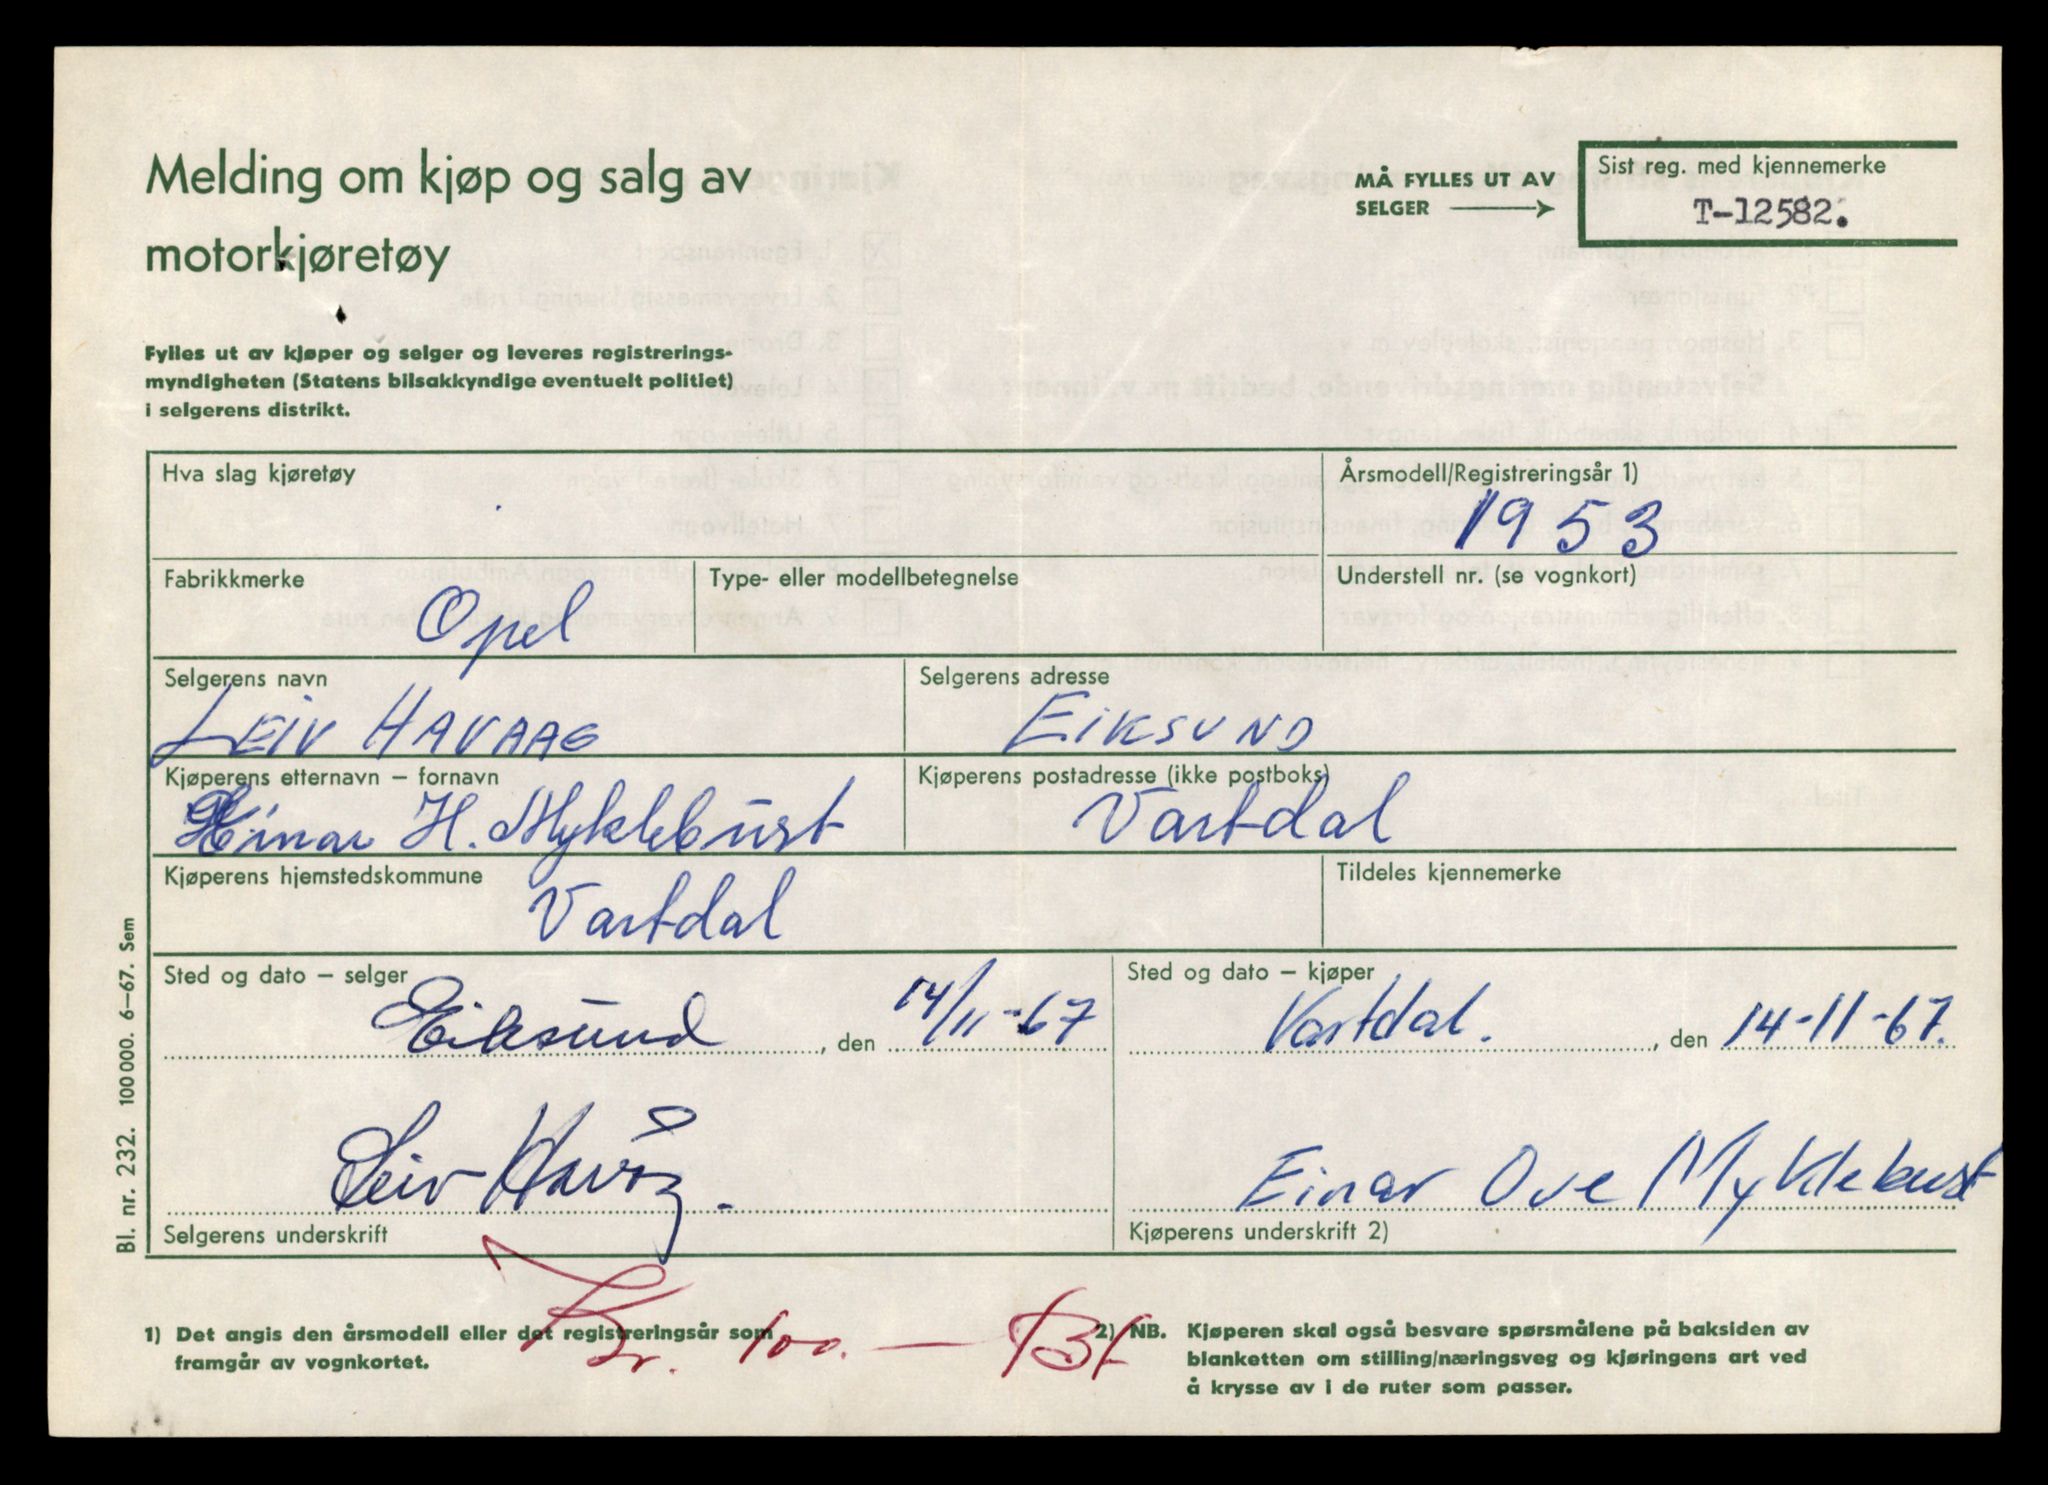 Melding om kjøp og salg av
motorkjøretøy
MÅ FYLLES UT AV
SELGER
Sist reg. med kjennemerke
T-12582.
Fylles ut av kjøper og selger og leveres registrerings-
myndigheten (Statens bilsakkyndige eventuelt politiet)
i selgerens distrikt.
Hva slag kjøretøy
Årsmodell/Registreringsår 1)
1953
Fabrikkmerke
Opel
Type- eller modellbetegnelse
Understell nr. (se vognkort)
Selgerens navn
LEIV HAVAAG
Selgerens adresse
EIKSUND
Kjøperens etternavn – fornavn
Einar H. Myklebust
Kjøperens postadresse (ikke postboks)
Vartdal
Kjøperens hjemstedskommune
Vartdal
Tildeles kjennemerke
Sted og dato – selger
Eiksund, den 14/11-67
Sted og dato – kjøper
Vartdal., den 14-11-67.
Leiv Havåg.
Selgerens underskrift
Einar Ove Myklebust
Kjøperens underskrift 2)
Kr. 100.—
1) Det angis den årsmodell eller det registreringsår som
framgår av vognkortet.
2) NB. Kjøperen skal også besvare spørsmålene på baksiden av
blanketten om stilling/næringsveg og kjøringens art ved
å krysse av i de ruter som passer.
Bl. nr. 232. 100 000. 6–67. Sem